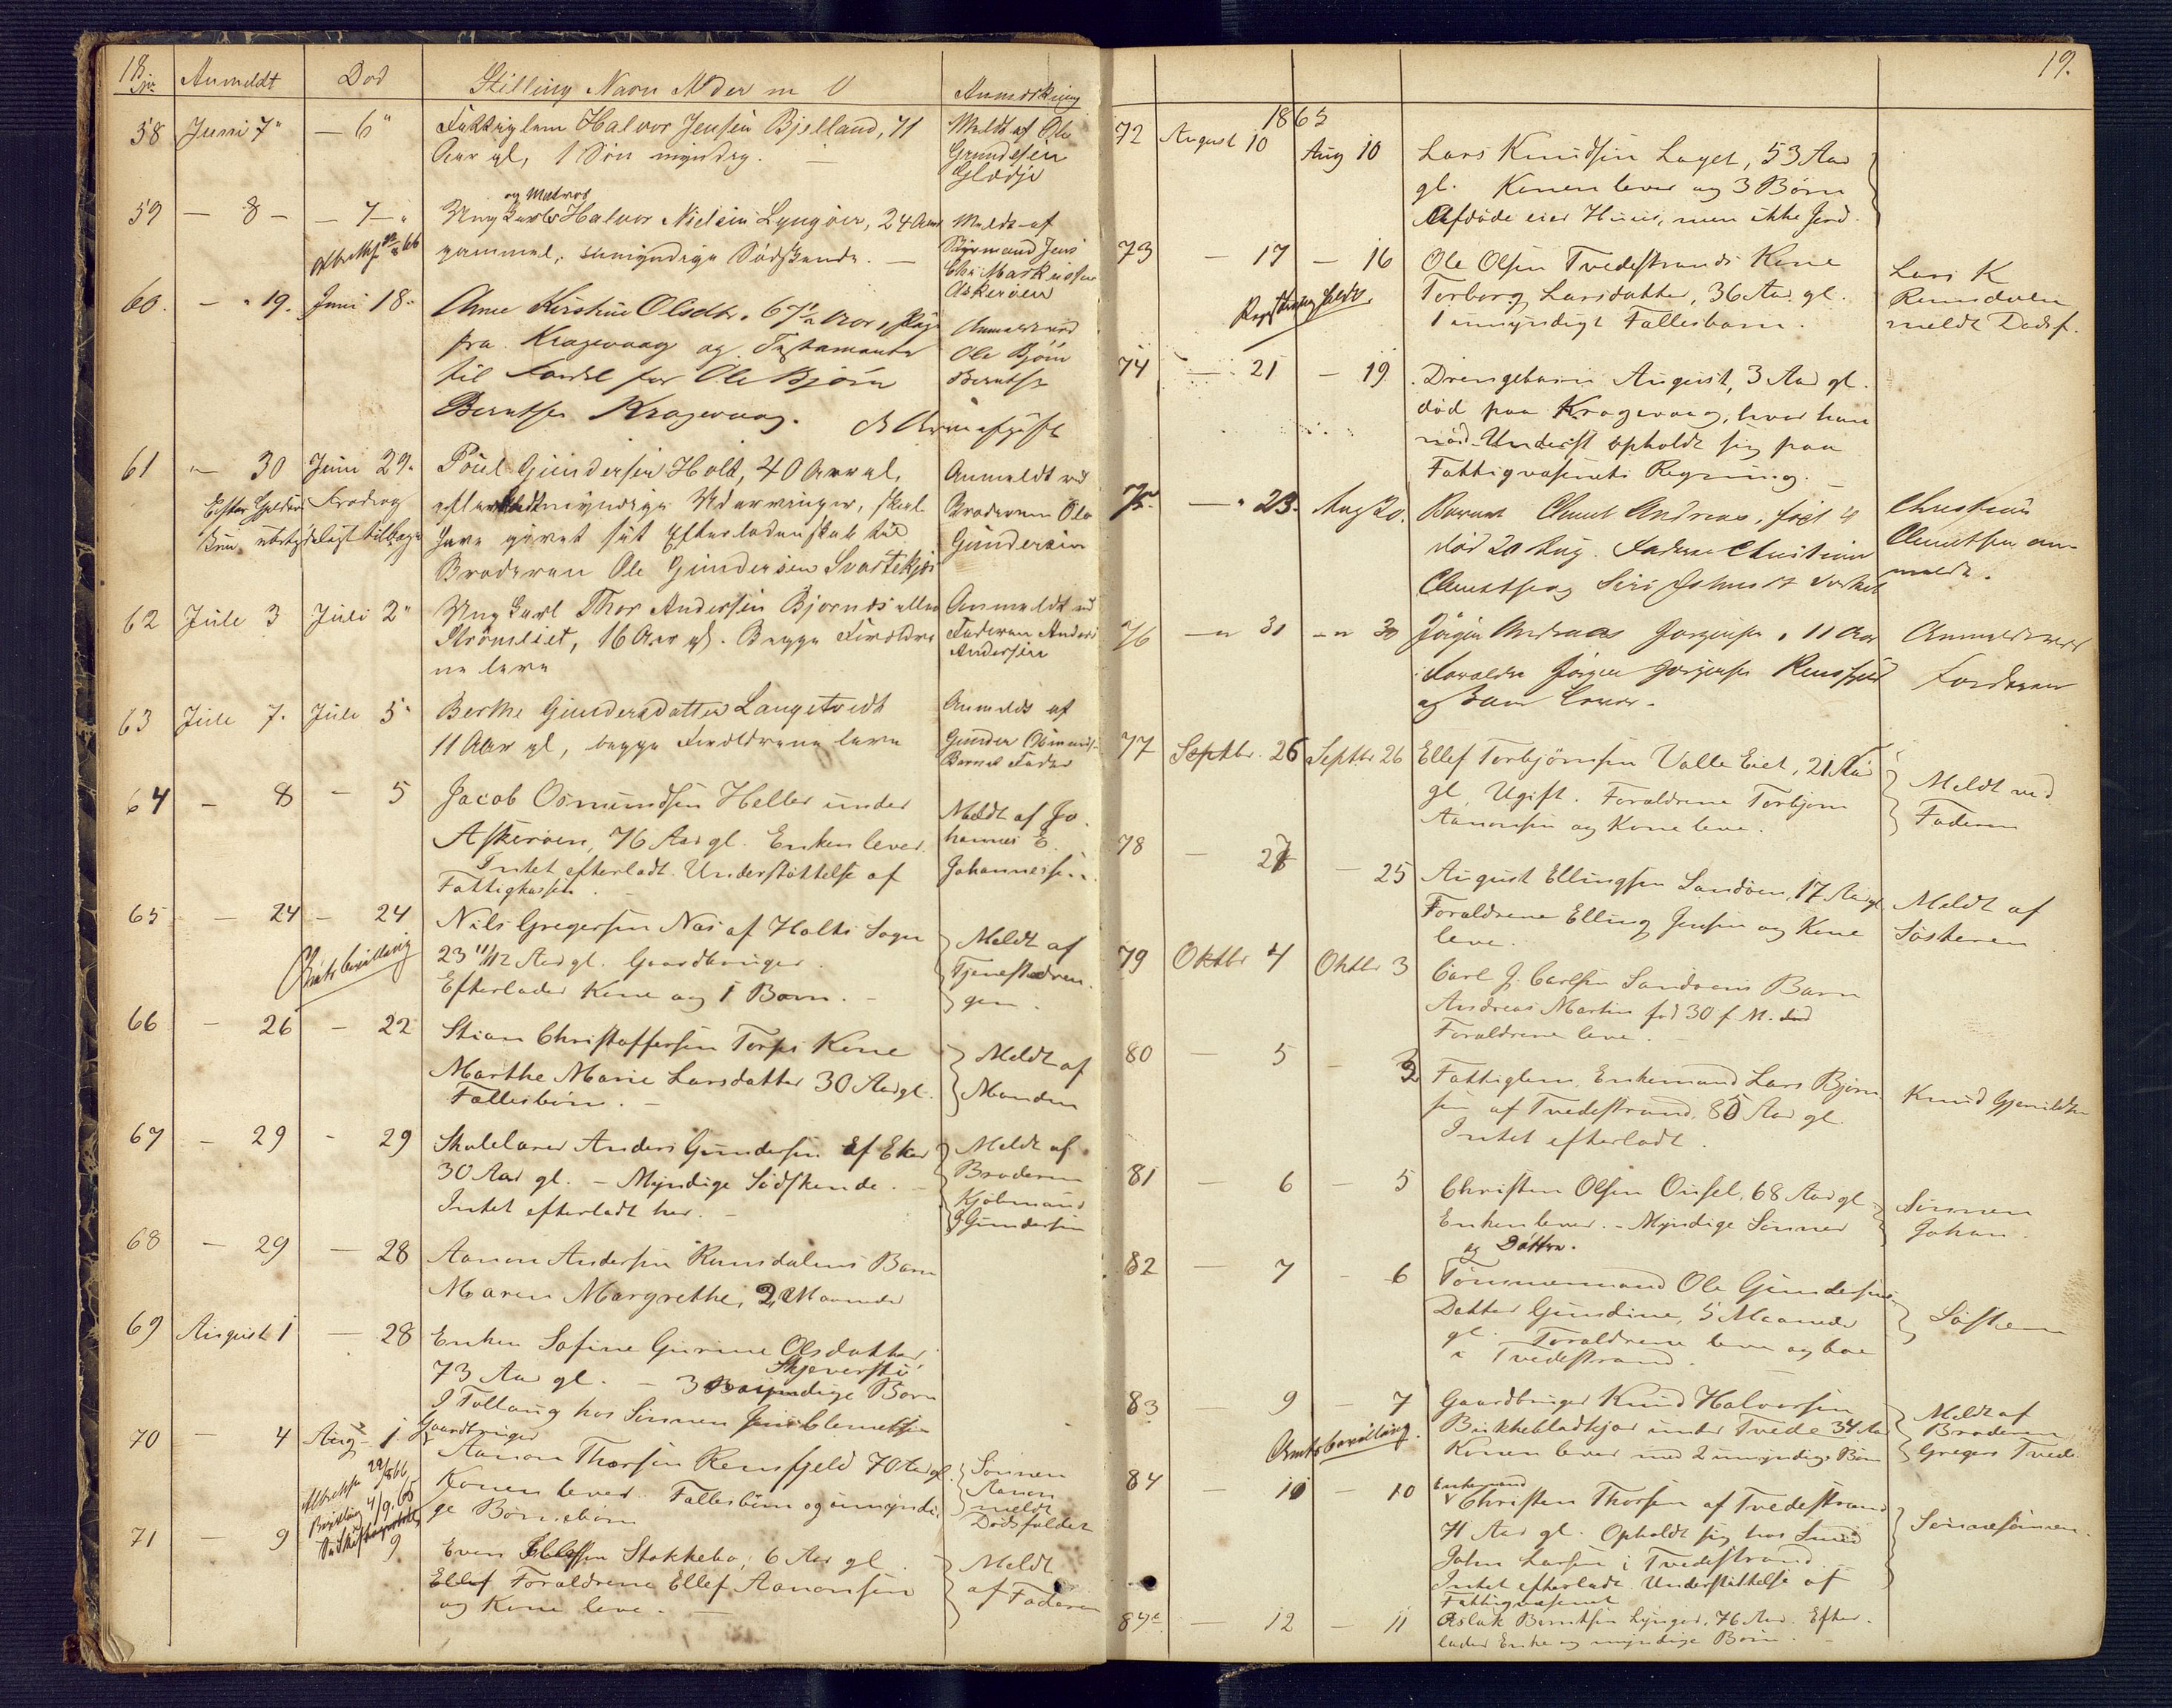 18
No Anmeldt Död Stilling Navn Alder m V Anmærkning
58 Juni 7 — 6 Fattiglem Halvor Jensen Bjelland, 71
Aar gl, 1 Søn myndig. —
Meldt af Ole
Gundesen
Glødje
59 — 8 — — 7 — og Matros
Ung Karl Halvor Nielsen Lyngöer, 24 Aar
gammel, umyndige Södskende. —
Meldt af
Styrmand Jens
Markussen
Askeröen
60. — 19. Juni 18. Anne Kirstine Olsdtr. 67½ Aar, Pige
fra Krogevaag og Testamente
til Fordel for Ole Björn
Berntsen Krogevaag.
Anmeldt ved
Ole Björn
Berntsen
61 — 30 Juni 29. Poul Gundersen Holt, 40 Aar gl.
efterladt myndige Udarvinger, skal
have givet sit Efterladenskab til
Broderen Ole Gundersen Svartekjær
Anmeldt ved
Broderen Ole
Gundersen
62 Juli 3 Juli 2 Ung Karl Thor Andersen Bjornds eller
Strömliet, 16 Aar gl. Begge Forældre
ne leve
Anmeldt ved
Faderen Anders
Andersen
63 Juli 7. Juli 5 Berthe Gundersdatter Langetvedt
11 Aar gl, begge Forældrene leve
Anmeldt af
Gunder
Barnets Fader
64 — 8 — 5 Jacob Osmundsen Heller under
Askeröen, 76 Aar gl. Enken lever.
Intet efterladt. Understöttelse af
Fattigkassen.
Meldt af Jo-
hannes E.
Johannessen
65 — 24 — 24 Nils Gregersen Næs af Holts Sogn
23 11/12 Aar gl. Gaardbruger.
Efterlader Kone og 1 Barn. —
Amtsbevilling
Meldt af
Tjenestedren-
gen.
66 — 26 — 22 Stian Christoffersen Torps Kone
Marthe Marie Larsdatter 30 Aar gl.
Fællesbörn. —
Meldt af
Manden
67 — 29 — 29 Skolelærer Anders Gundersen af Eker
30 Aar gl. — Myndige Södskende. —
Intet efterladt her. —
Meldt af
Broderen
Kjöbmand
G Gundersen
68 — 29 — 28 Aanon Andersen Rumsdalens Barn
Maren Margrethe, 2 Maaneder
69 August 1 — 28 Enken Sofine Gurine Olsdatter
Skjeverstö
73 Aar gl. — 3 myndige Börn
I Follaug hos Sönnen Jens Clemetsen
70 — 4 Aug. 1. Gaardbruger
Aanon Thorsen Rensfjeld 70 Aar gl.
Konen lever. Fællesbörn og umyndi-
ge Börnebörn
Sönnen
Aanon
meldt
Dödsfaldet
71 — 9 9 Even Ellefsen Stokkebo, 6 Aar gl
Ellef Forældrene Ellef Aanonsen
og Kone leve. —
Meldt
af Faderen
19.
1865
72 August 10 Aug 10 Lars Knudsen Laget, 53 Aar
gl. Konen lever og 3 Börn
Afdöde eier Huus, men ikke Jord.
73 — 17 — 16 Ole Olsen Tvedestrands Kone
Torborg Larsdatter, 36 Aar gl.
1 umyndigt Fællesbarn.
Lars K
Rumsdalen
meldt Dödsf.
74 — 21 — 19 Drengebarn August, 3 Aar gl.
död paa Krogevaag, hvor han
med Underst opholdt sig paa
Fattigvæsenets Regning. —
75. — 23. Aug 20. Barnet Clemet Andreas, född 4
död 20 Aug. Fader Christian
Christian
Clemetsen an-
meldt.
76 — 31 — 30 Jörgen Andreas Jörgensen, 11 Aar
Forældre Jörgen Jörgensen Rensfjeld
og Barn lever.
Anmeldt ved
Faderen
77 Septbr. 26 Septbr 26 Ellef Torbjörnsen Valle Eiet, 21 Aar
gl. Ugift. Forældrene Torbjörn
Aanonsen og Kone leve.
Meldt ved
Faderen
78 — 27 — 25 August Ellingsen Sandöen, 17 Aar gl
Forældrene Elling Jensen og Kone
leve.
Meldt af
Søsteren
79 Oktbr 4 Oktbr 3 Carl J. Carlsen Sandöens Barn
Andreas Martin föd 30 f. M.
Forældrene leve. —
80 — 5 — 3 Fattiglem, Enkemand Lars Björn
sen af Tvedestrand, 85 Aar gl.
Intet efterladt.
Knud Gjermundsen
81 — 6 — 5 Christen Olsen Ousel, 68 Aar gl.
Enken lever. — Myndige Sönner
og Döttre.
Sönnen
Johan
82 — 7 — 6 Tömmermand Ole Gundersens
Datter Gundine, 5 Maaneder
gl. Forældrene leve og boe
i Tvedestrand.
Søsteren
83 — 9 — 7 Gaardbruger Knud Halvorsen
Birkebladkjær under Tvede 34 Aar
Konen lever med 2 umyndige Börn
Amtsbevilling.
Meldt af
Broderen
Gregers Tvede
84 — 10 — 10 Enkemand
Christen Thorsen af Tvedestrand
71 Aar gl. Opholdt sig hos Smed
John Larsen i Tvedestrand. —
Intet efterladt. Understöttelse af
Fattigvæsenet
Sönnesönnen.
84b — 12 — 11 Aslak Berntsen Lyngör, 76 Aar. Efter-
lader Enke og myndige Börn. —